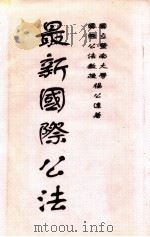 國立暨南大學
國際公法教授 楊公達著
最新國際公法